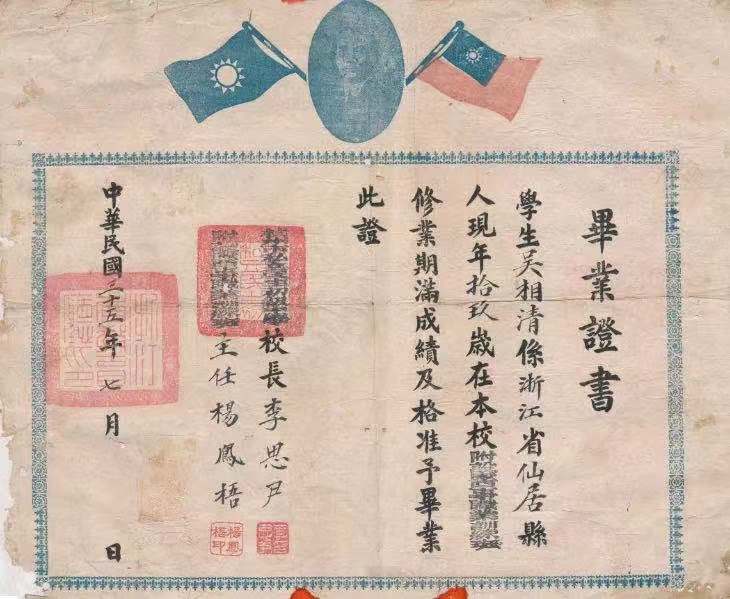 畢業證書
學生吳相清係浙江省仙居縣
人現年拾玖歲在本校附設
修業期滿成績及格准予畢業
此證
校長李思尹
主任楊鳳梧
中華民國三十五年七月 日